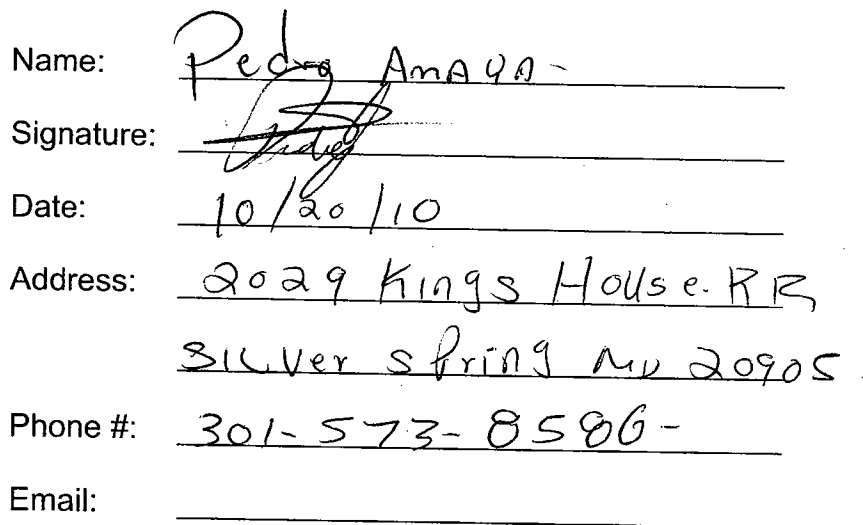 Name: Pedro AnAyA-
Signature:
Date: 10/20/10
Address: 2029 Kings House. RR
SILVer spring MD 20905
Phone #: 301-573-8586-
Email: